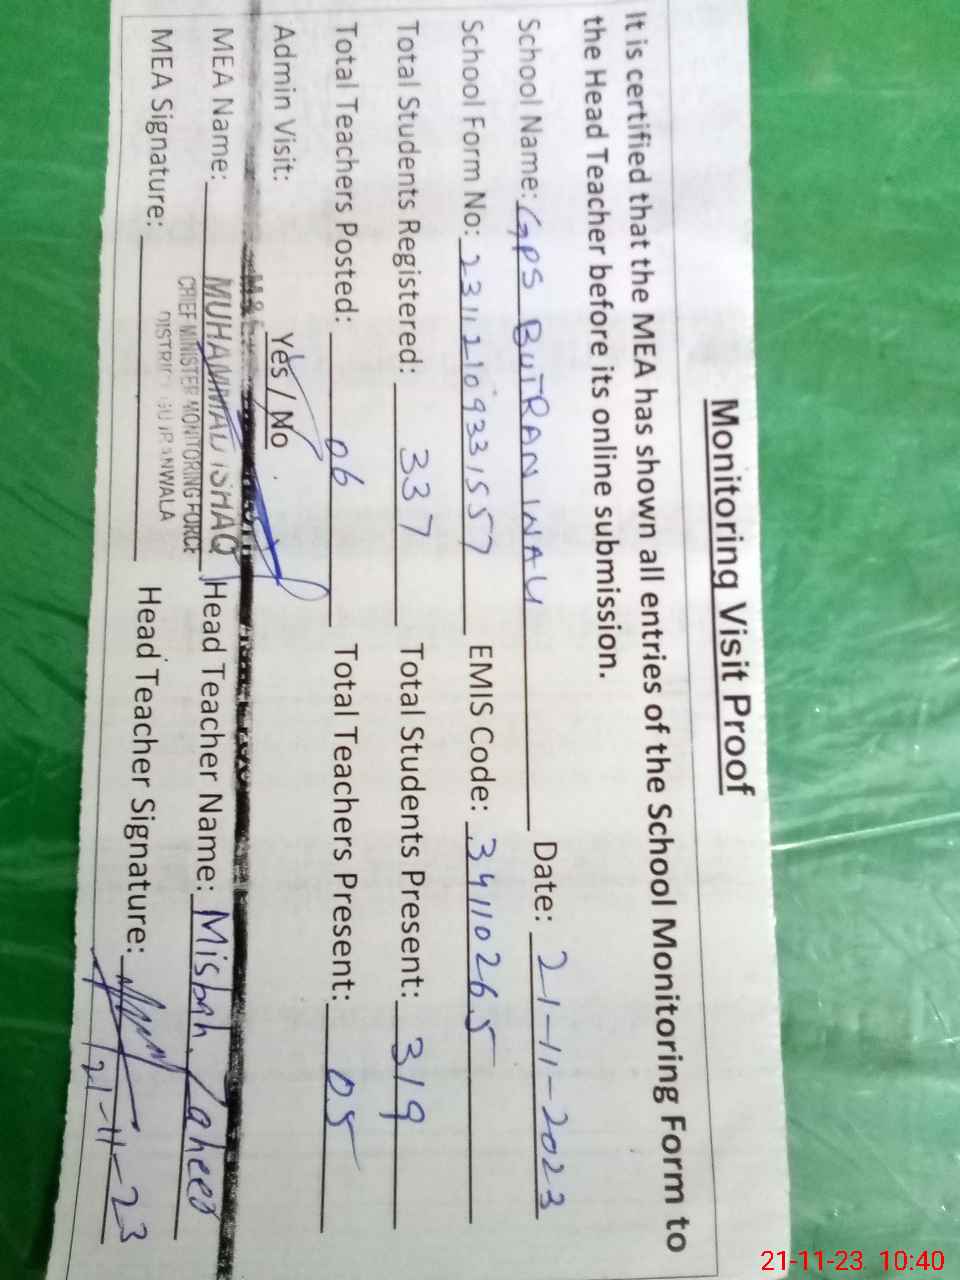 Monitoring Visit Proof
It is certified that the MEA has shown all entries of the School Monitoring Form to
the Head Teacher before its online submission.
School Name: GPS BUTRAN WALI Date: 21-11-2023
School Form No: 2311210933157 EMIS Code: 34110265
Total Students Registered: 337 Total Students Present: 319
Total Teachers Posted: 06 Total Teachers Present: 05
Admin Visit: Yes / No
MEA Name: MUHAMMAD ISHAQ Head Teacher Name: Misbah Zaheer
CHIEF MINISTER MONITORING FORCE
MEA Signature: DISTRICT GUJRANWALA Head Teacher Signature:
21-11-23
21-11-23 10:40